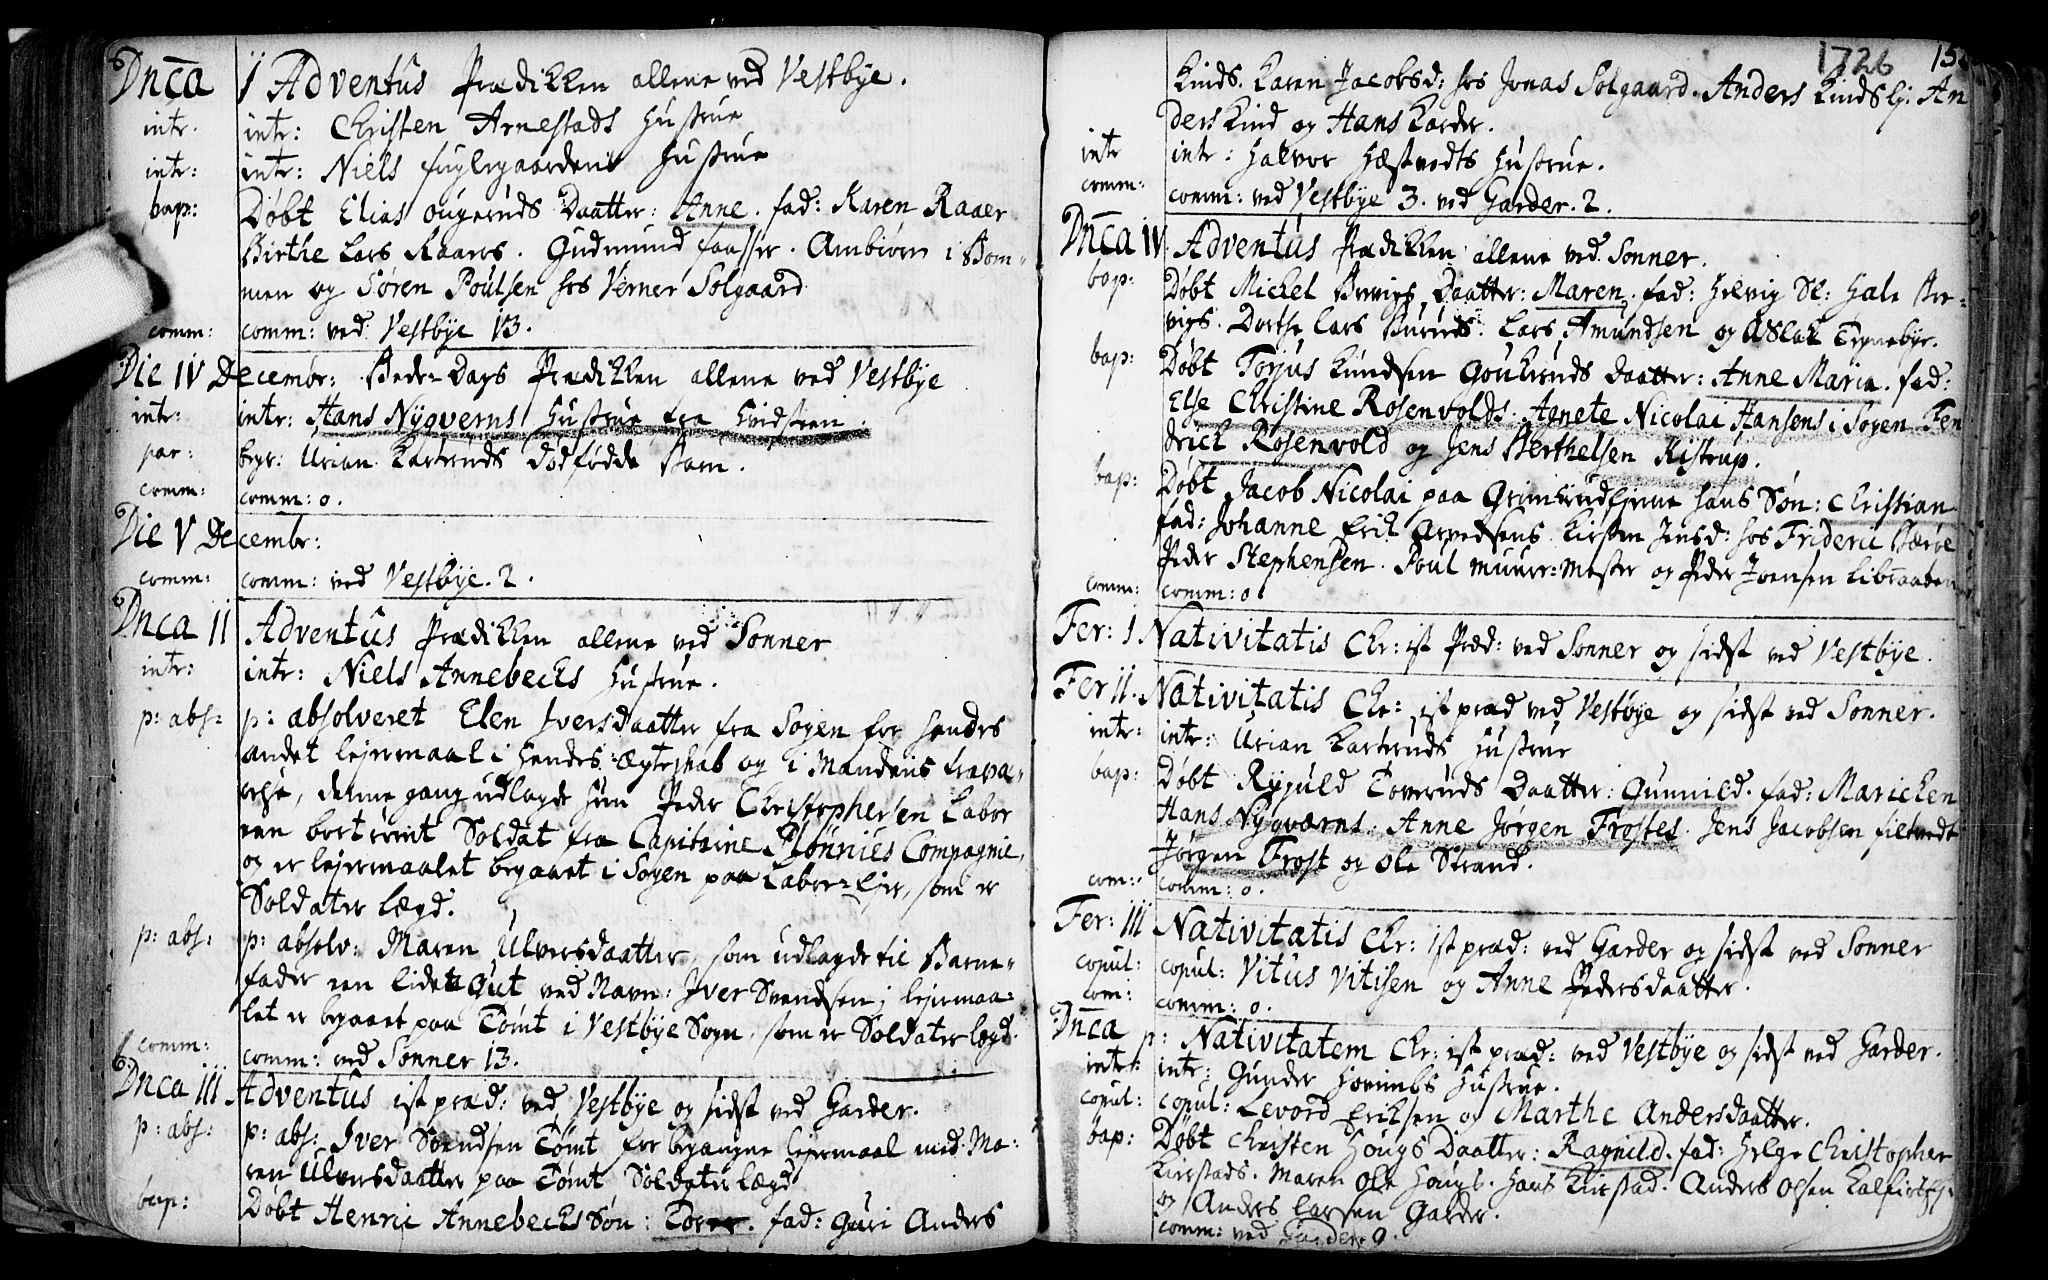 Dnca I Adventus Prædikken allene ved Vestbye.
intr. intr: Christen Arnestads Hustrue
intr: intr: Niels fuglegaardens Hustrue
bap: Døbt Elias ougeruds Daatter: Anne. fad: Karen Raaer
Birthe Lars Raaers. Gudmund faasser. Ambiørn i Bom-
men og Søren Poulsen hos Verner Solgaard
comm: comm: ved Vestbye 13.
Die IV Decembr: Bede-Dags Prædikken allene ved Vestbye
intr: intr: Hans Nÿqverns Hustrue fra Hvidsteen.
par: begr: Urian Karteruds Dødfødde Barn.
comm: comm: 0.
Die V Decembr:
comm: comm: ved Vestbÿe. 2.
Dnca II Adventus Prædikken allene ved Sonner
intr: intr: Niels Annebecks Hustrue.
p: abs: p: absolveret Elen Iversdaatter fra Sogen for hendes
andet lejermaal i hendes ægteskab og i Mandens fravæ-
relse, denne gang udlagde hun Peder Christophersen Labor
een bortrømt Soldat fra Capitaine Plønnies Compagnie,
og er lejermaalet begaaet i Sogen paa Labor-Ejer, som er
Soldater lægd.
p: abs: p: absolv: Maren Ulversdaatter, som udlagde til Barne-
fader een liden Gut ved Navn: Iver Svendsen; lejermaa-
let er begaaet paa Tømt i Vestbÿe Sogn, som er Soldater lægd.
comm: comm: ved Sonner 13.
Dnca III Adventus 1st præd: ved Vestbÿe og sidst ved Garder.
p: abs: p: abs: Iver Svendsen Tømt for begangne lejermaal med Ma-
ren Ulversdaatter paa Tømt Soldater lægd
bap: Døbt Henric Annebecks Søn: fad: Guri Anders
1726
Kinds. Karen Jacobsd: hos Jonas Solgaard. Anders Kinds Ej. An
ders Kind og Hans Karder.
intr intr: Halvor Hæstvedts Hustrue.
comm: comm: ved Vestbÿe 3. ved Garder. 2.
Dnca IV Adventus Prædikken allene ved Sonner.
bap: Døbt Michel Brevigs Daatter: Maren. fad: Helvig Sl: Hale Bre-
vigs. Dorthe Lars Lars Amundsen og Aslak Tegnebye.
bap: Døbt Torjus Knudsen Goukeruds Daatter: Anne Maria. fad:
Else Christine Rosenvolds. Agnete Nicolai Hansens i Sogen. Fen
drich Rosenvold og Jens Berthelsen Ristrup.
bap: Døbt Jacob Nicolai paa Grimsrudejerne hans Søn: Christian
fad: Johanne Erik Arvedsens. Kirsten Jensd: hos Frideric
Peder Stephensen. Poul Muurmester og Peder Joensen
comm: comm: 0.
Fer: I Nativitatis Chr: 1st Præd: ved Sonner og sidst ved Vestbÿe.
Fer II. Nativitatis Chr: 1st præd ved Vestbÿe og sidst ved Sonner.
intr: intr: Urian Karteruds Hustrue
bap: Døbt Ryguld Toveruds Daatter: Gunnild. fad: Maricken
Hans Nÿgværns. Anne Jørgen Frostes. Jens Jacobsen filtvedt
Jørgen Frost og Ole Strand.
com: comm: 0.
Fer: III Nativitatis Chr: 1st præd: ved Garder og sidst ved Sonner
copul: copul: Vitus Vitisen og Anne Pedersdaatter.
com: comm: 0.
Dnca p: Nativitatem Chr: 1st præd: ved Vestbÿe og sidst ved Garder.
intr: intr: Gunder Hustrue.
copul: copul: Levord Eriksen og Marthe Andersdaatter.
bap: Døbt Christen Hougs Daatter: Ragnild. fad: Helge Christopher
Kirstads. Maren Ole Hougs. Hans Kirstad. Anders Olsen
og Anders Larsen Garder.
comm: ved Garder 9.